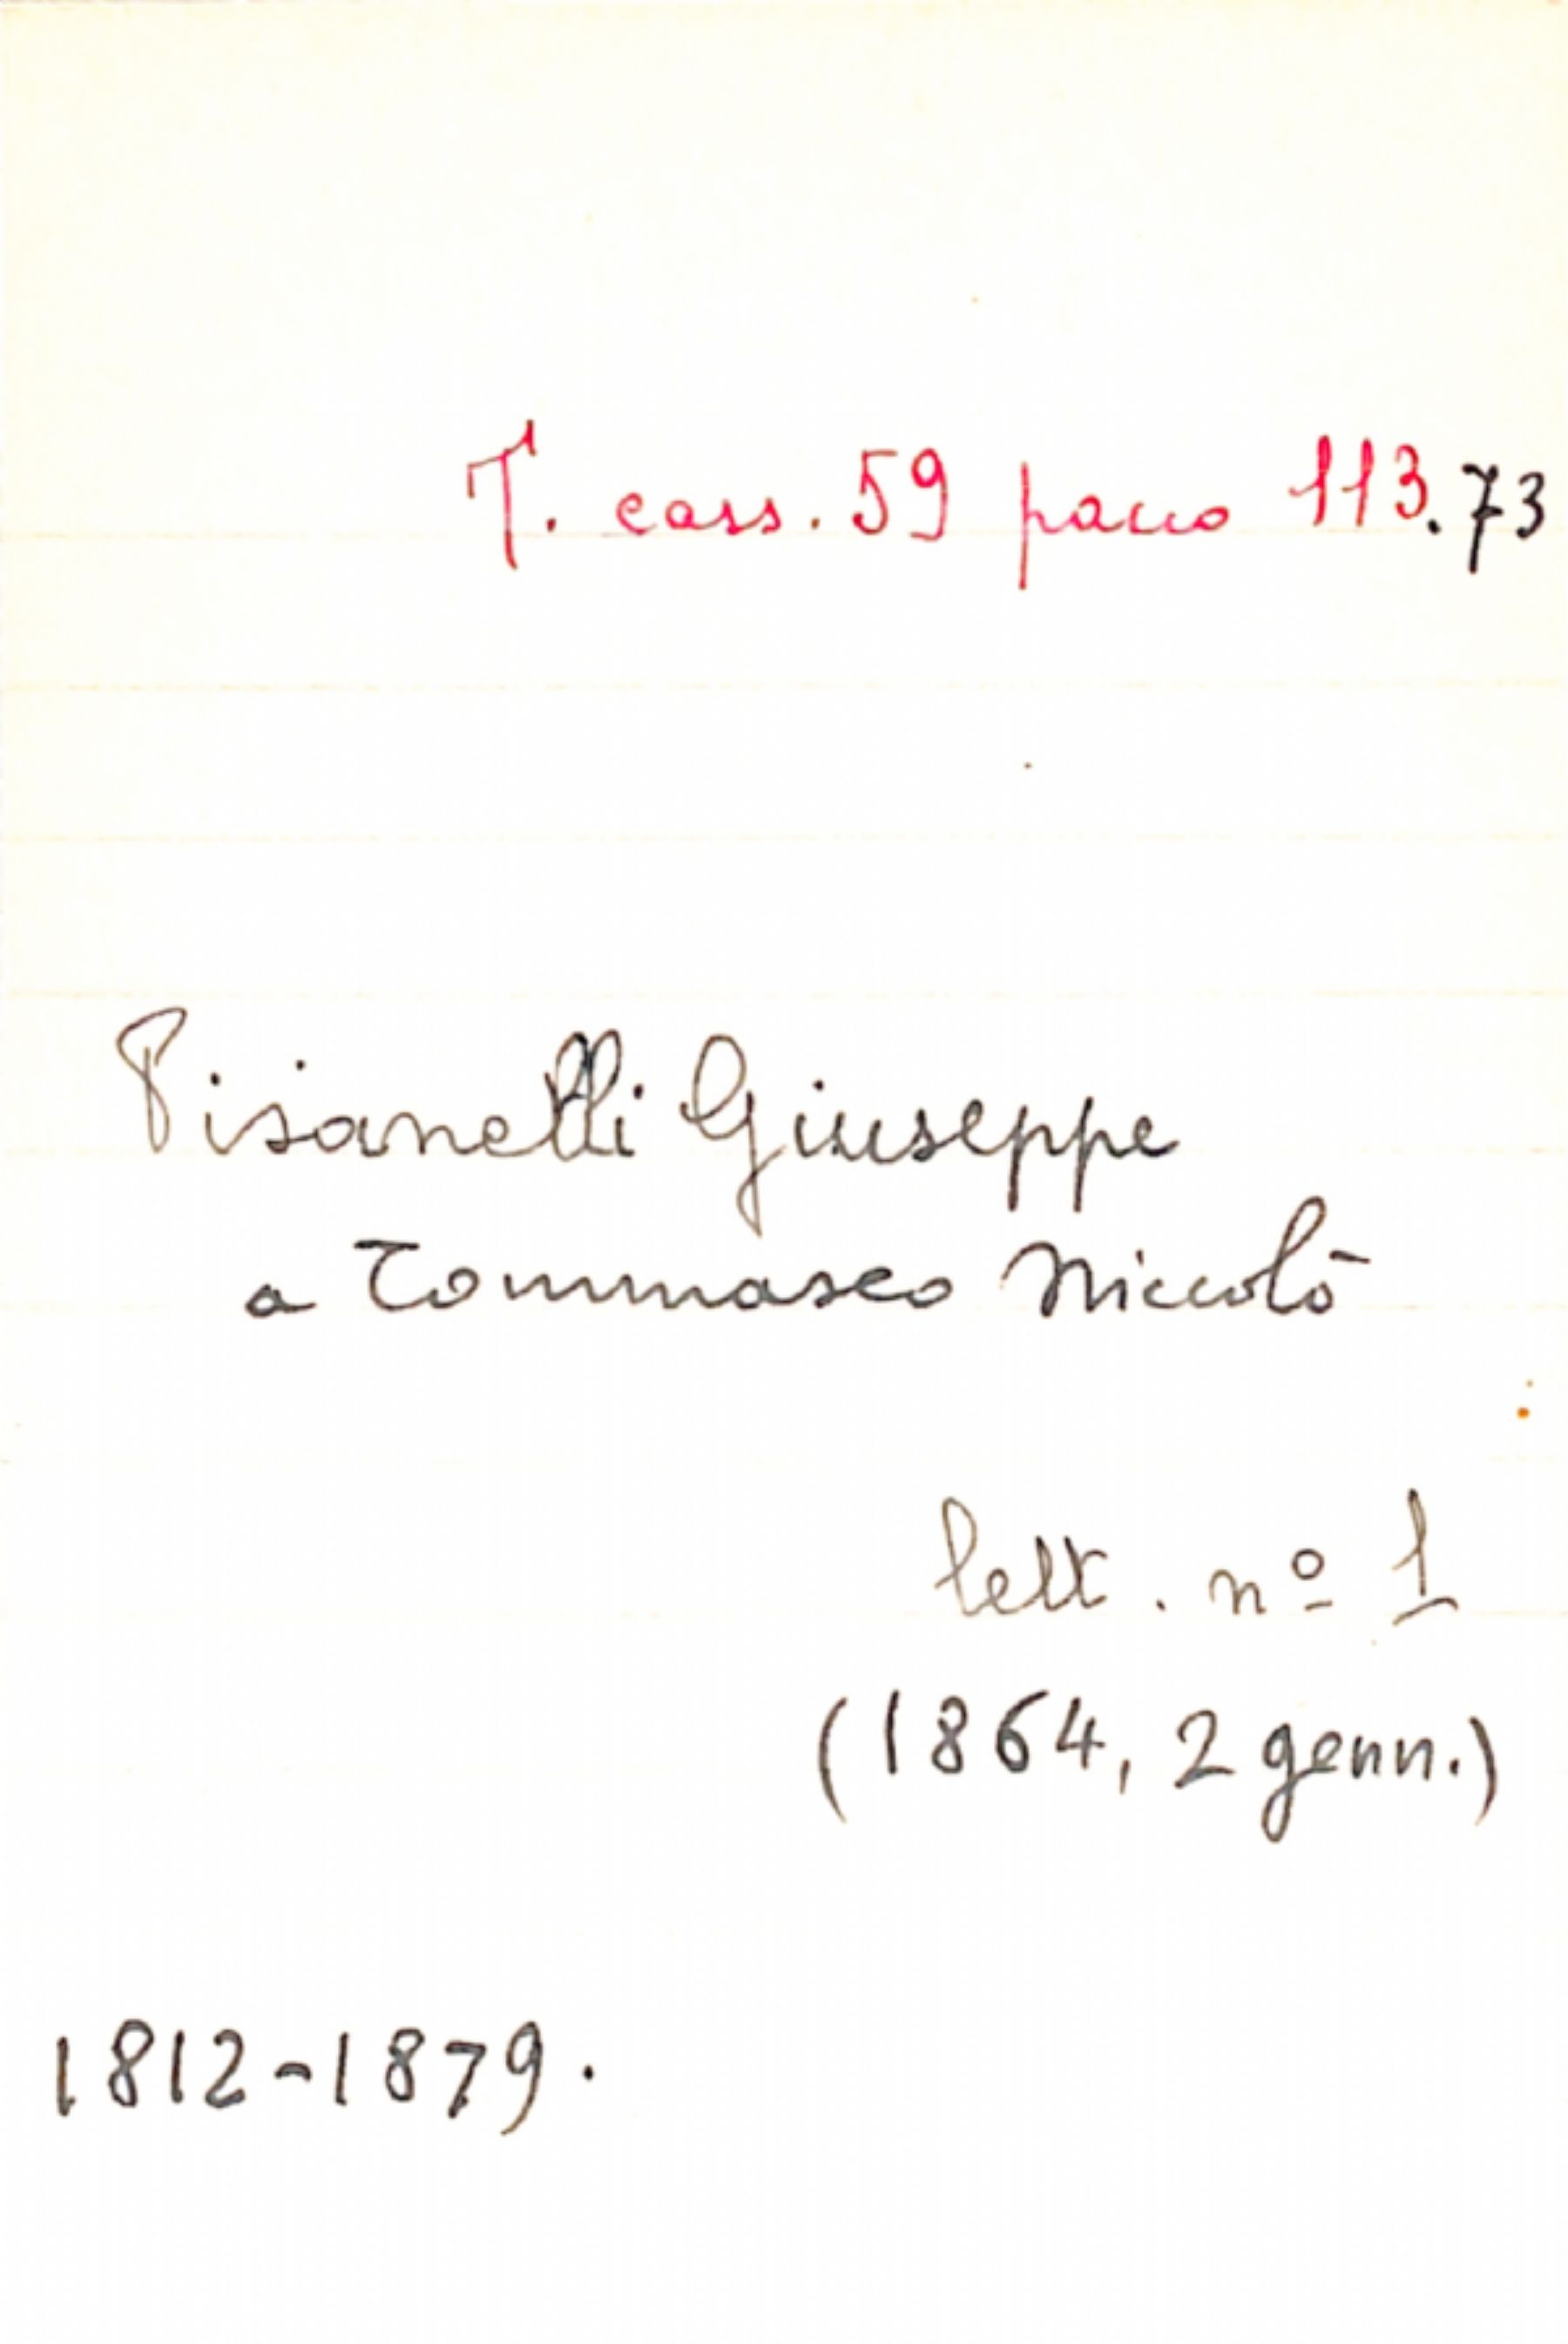 T. cass. 59 pacco 113.73
Pisanelli Giuseppe
a Tommaseo Niccolò
lett. nº 1
(1864, 2 genn.)
1812-1879.